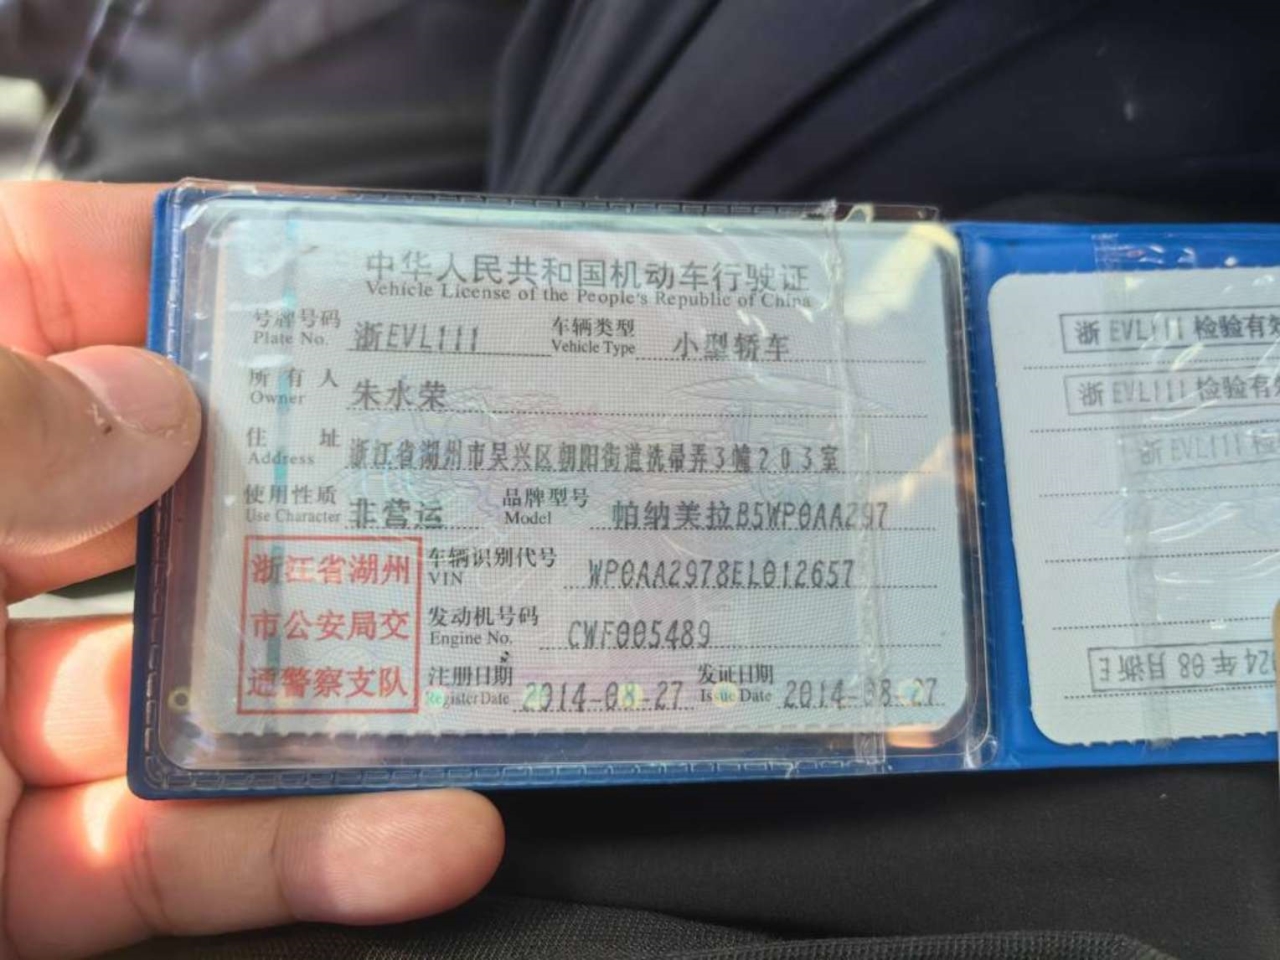 中华人民共和国机动车行驶证
Vehicle License of the People's Republic of China
号牌号码 浙EVL111 车辆类型 小型轿车
Plate No. Vehicle Type
所有人 朱水荣
Owner
住址 浙江省湖州市吴兴区朝阳街道洗帚弄3幢203室
Address
使用性质 非营运 品牌型号 帕纳美拉B5WP0AA297
Use Character Model
浙江省湖州
市公安局交
通警察支队
车辆识别代号 WP0AA2978EL012657
VIN
发动机号码 CWF005489
Engine No.
注册日期 2014-08-27 发证日期 2014-08-27
Register Date Issue Date
浙EVL111检验有效
浙EVL111检验有
浙EVL111
24年08月浙E